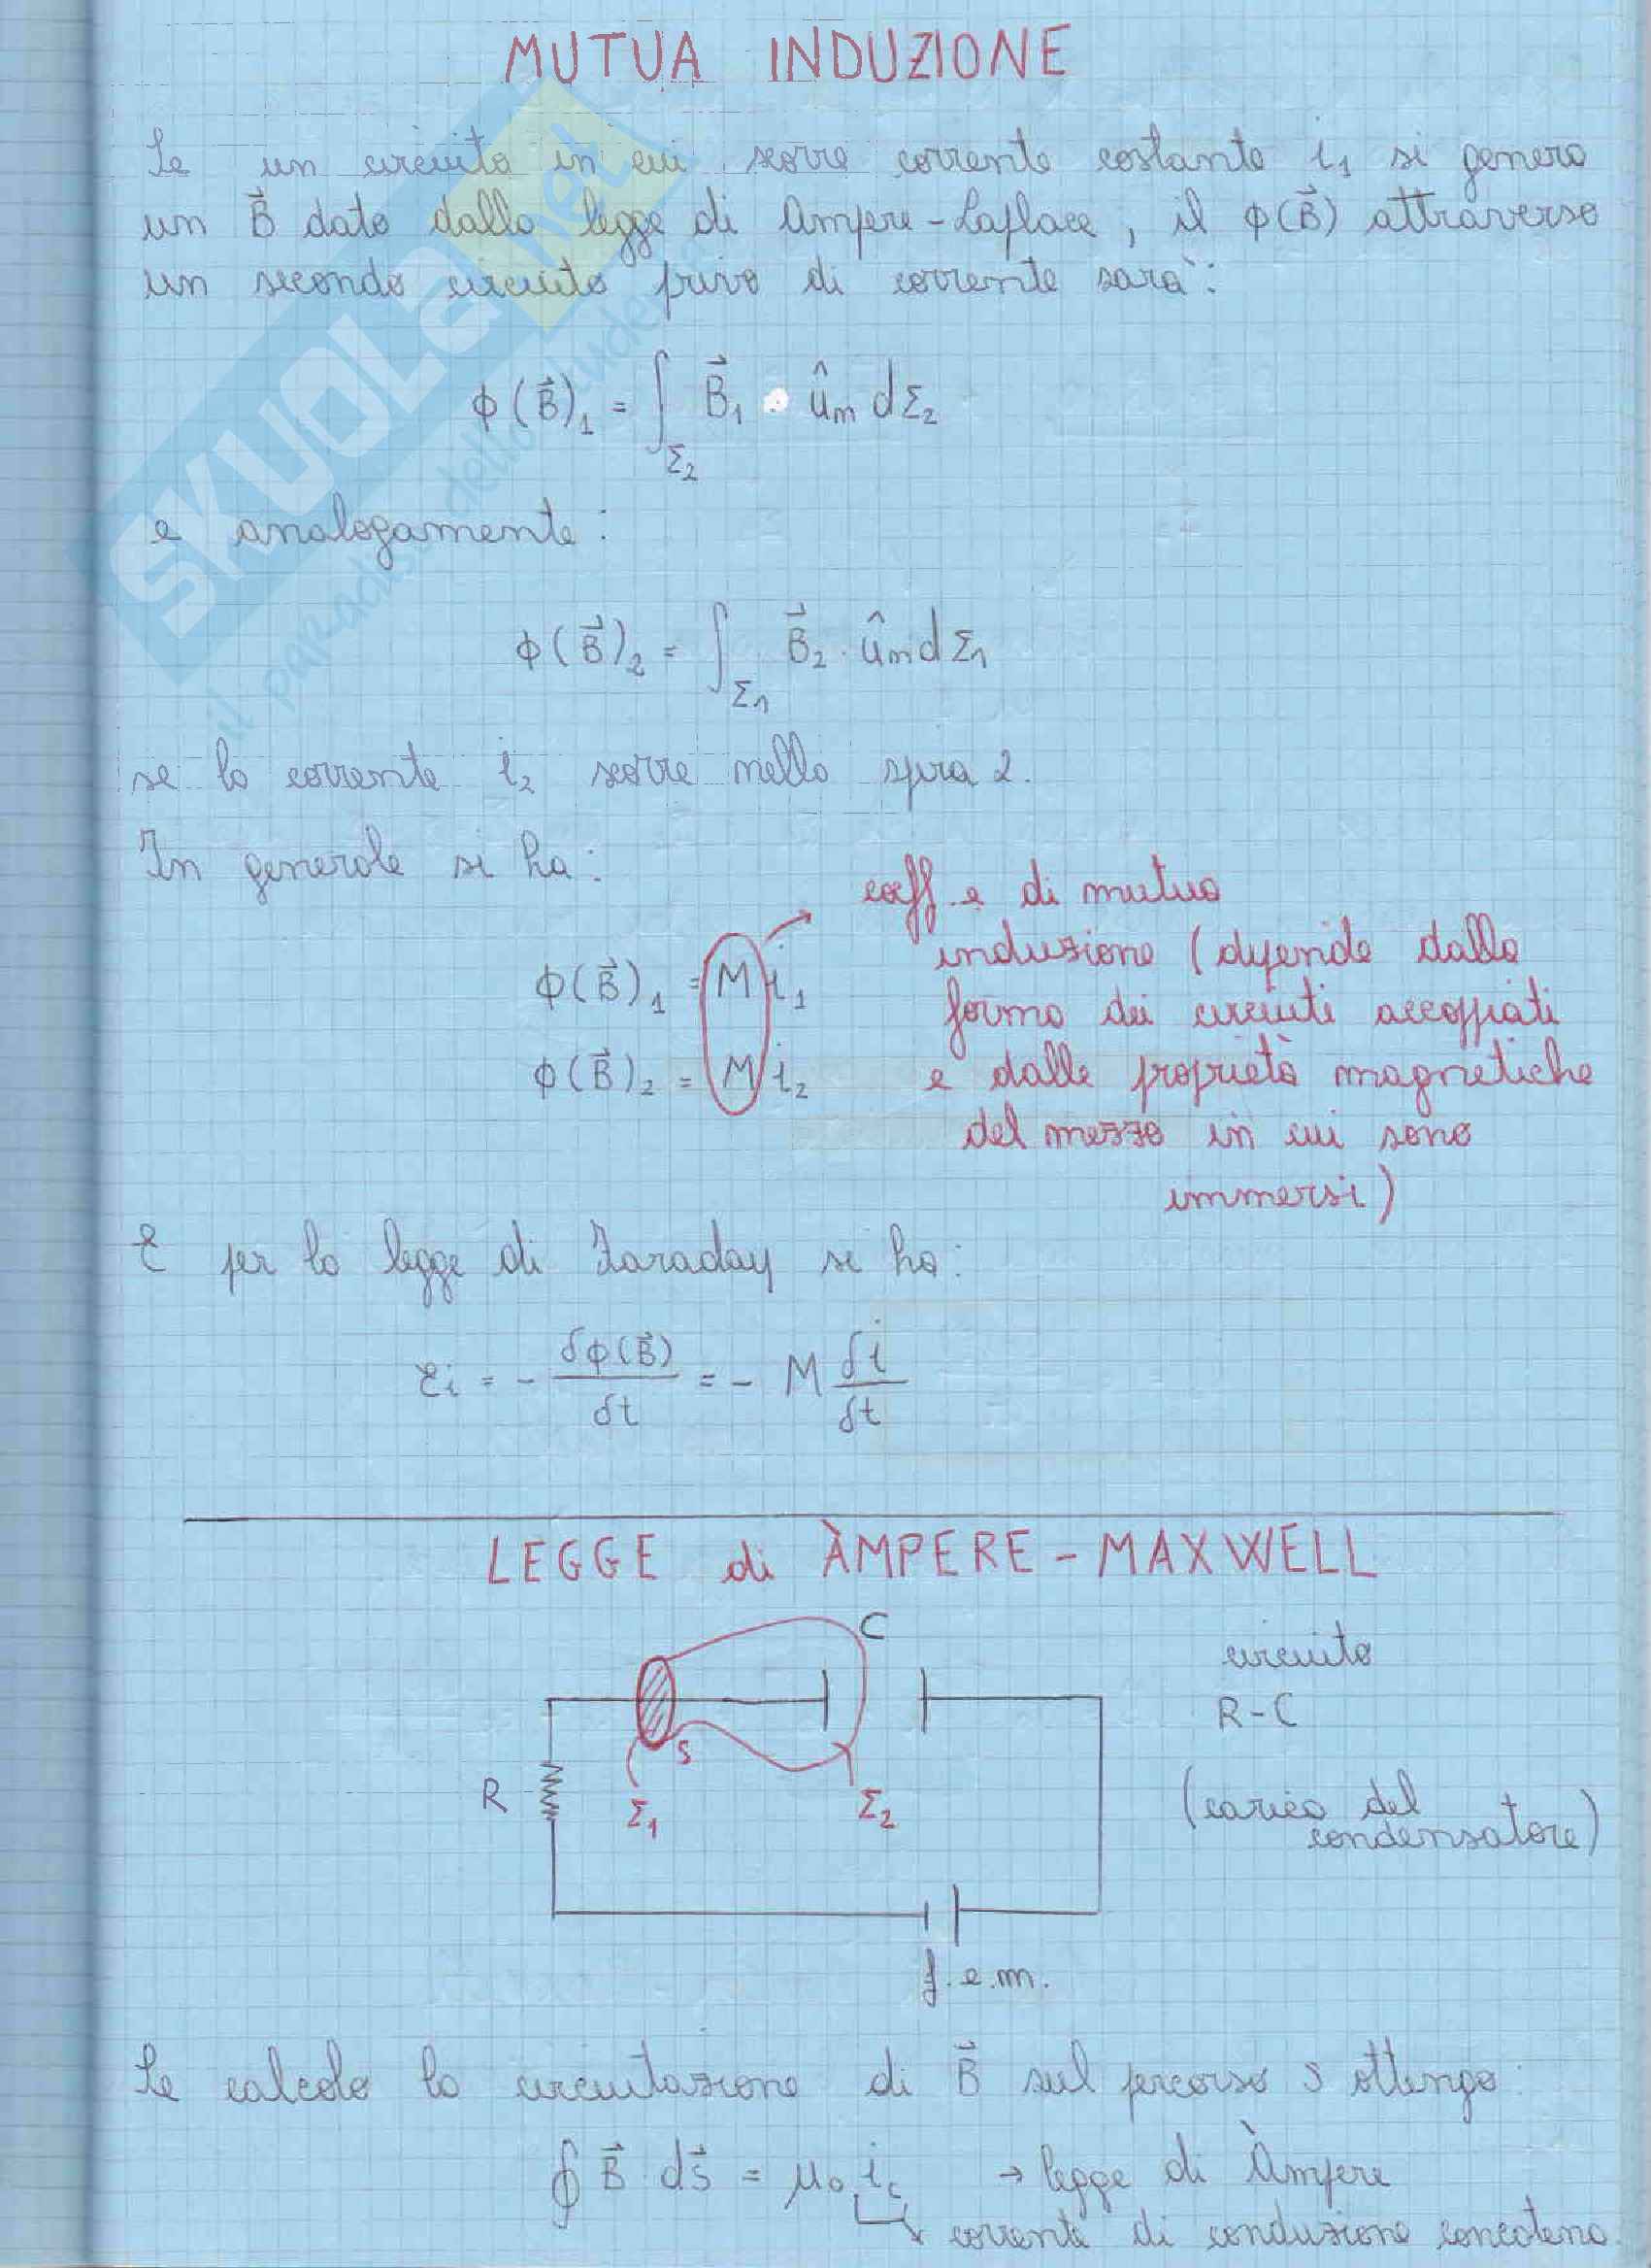 MUTUA INDUZIONE
Se un circuito in cui scorre corrente costante i₁ si genera
un B⃗ dato dalla legge di Ampere-Laplace, il ϕ(B⃗) attraverso
un secondo circuito privo di corrente sarà:
ϕ(B⃗)₁ = ∫_Σ₂ B⃗₁ · ûₘ dΣ₂
e analogamente:
ϕ(B⃗)₂ = ∫_Σ₁ B⃗₂ · ûₘ dΣ₁
se la corrente i₂ scorre nella spira 2.
In generale si ha:
ϕ(B⃗)₁ = M i₁
ϕ(B⃗)₂ = M i₂
coeff.e di mutua
induzione (dipende dalla
forma dei circuiti accoppiati
e dalle proprietà magnetiche
del mezzo in cui sono
immersi)
E per la legge di Faraday si ha:
εi = - δϕ(B⃗)/δt = - M δi/δt
LEGGE di ÀMPERE - MAXWELL
C
circuito
R-C
S
R
Σ₁
Σ₂
(carica del
condensatore)
f.e.m.
Se calcolo la circuitazione di B⃗ sul percorso S ottengo:
∮ B⃗ · ds⃗ = μ₀ i_c → legge di Àmpere
corrente di conduzione concatena
SKUOLA.net
il paradiso dello studente